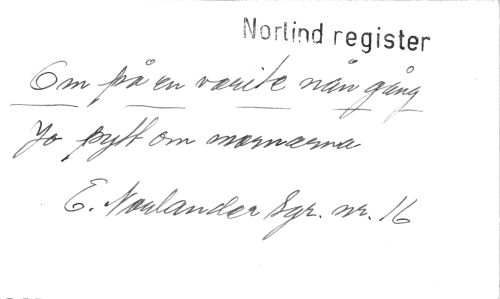 Norlind register
Om på en varité nån gång
Jo pytt om mornarna
E. Norlander Sgr. nr. 16